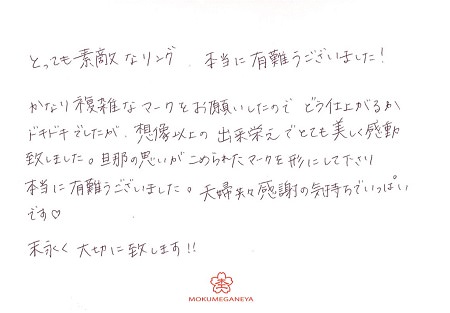 とっても素敵なリング 本当に有難うございました!
かなり複雑なマークをお願いしたので どう仕上がるか
ドキドキでしたが、想像以上の出来栄えでとても美しく感動
致しました。旦那の思いがこめられたマークを形にして下さり
本当に有難うございました。夫婦共々感謝の気持ちでいっぱい
です♡
末永く 大切に致します!!
MOKUMEGANEYA